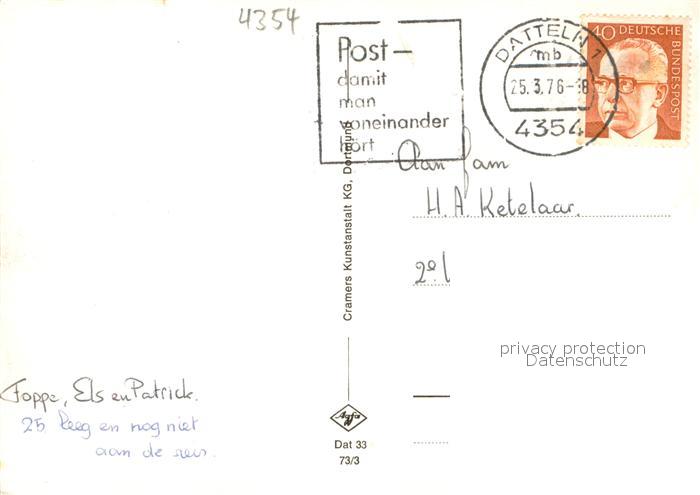 4354
Post—
damit
man
voneinander
hört
DATTELN 1
mb
25.3.76-18
4354
40 DEUTSCHE BUNDESPOST
Aan fam
H. A. Ketelaar.
2e
privacy protection
Datenschutz
Cramers Kunstanstalt KG, Dortmund
Foppe, Els en Patrick.
25 leeg en nog niet
aan de reis.
Agfa
Dat 33
73/3